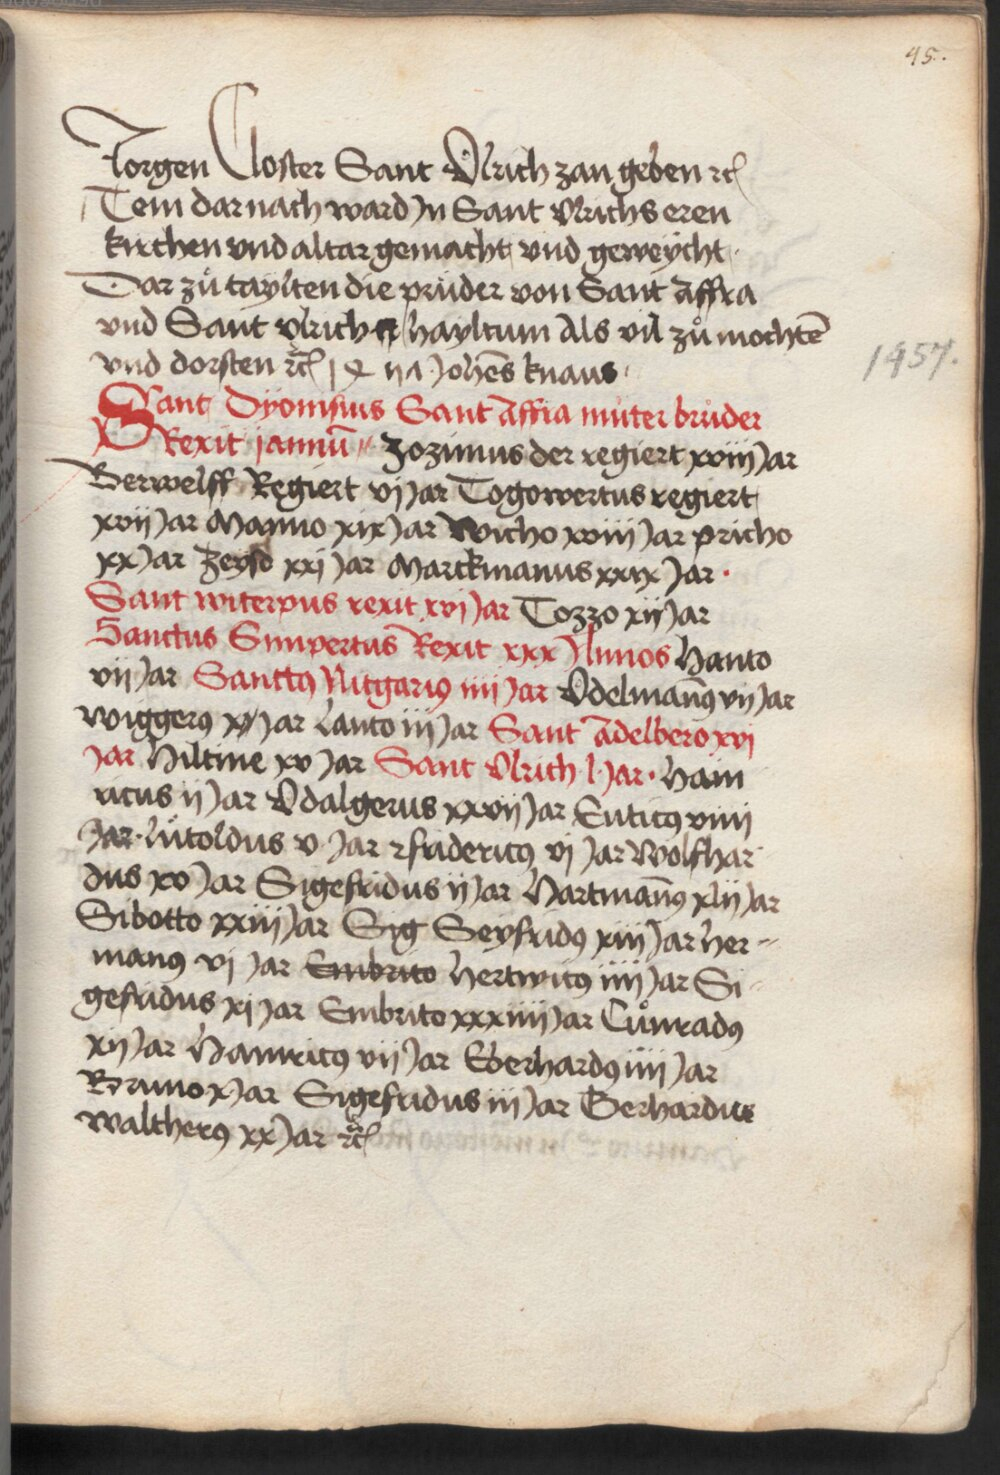 45.
Jorgen Closter Sant Vlrich zan geben rc̃
Tem darnach ward Jn Sant vlrichs eren
kirchen vnd altar gemacht vnd geweÿcht
Dar zů taylten die prüder von Sant affra
vnd Sant vlrich hayltum als vil zů mochtē
vnd dorsten rc̃ Johēs knaus
1457.
Sant Dÿonisius Sant Affra můter brůder
Rexit j annū Zozimus der regiert xviij Jar
Berwelff Regiert vj Jar Togowertus regiert
xvij Jar Manno xix Jar Wicho xviij Jar pricho
xx Jar Zeyso xxj Jar Marckmanus xxix Jar
Sant witerpus rexit xvj Jar Tozzo xij Jar
Sanctus Simpertus Rexit xxx Annos Hanto
vij Jar Sanctꝰ Nitgariꝰ iiij Jar Vdelmanꝰ vij Jar
wiggerꝰ Jar Lanto iij Jar Sant Adelbero xvj
Jar Hiltine xv Jar Sant Vlrich l Jar Hain
ricus ij Jar Vdalgerus xxvij Jar Euticꝰ viiij
Jar Lütoldus v Jar fridericꝰ vj Jar Wolfhar
dus xv Jar Sigefridus ij Jar Hartmanꝰ xlij Jar
Sibotto xxiij Jar Sig Seyfridꝰ xiij Jar Her
manꝰ vj Jar Embrito Hertwicꝰ iiij Jar Si
gefridus xj Jar Embrito xxxiiij Jar Cůnradꝰ
xij Jar Hainricꝰ vij Jar Eberhardꝰ iiij Jar
Bruno x Jar Sigefridus iij Jar Gerhardus
waltherꝰ xx Jar rc̃